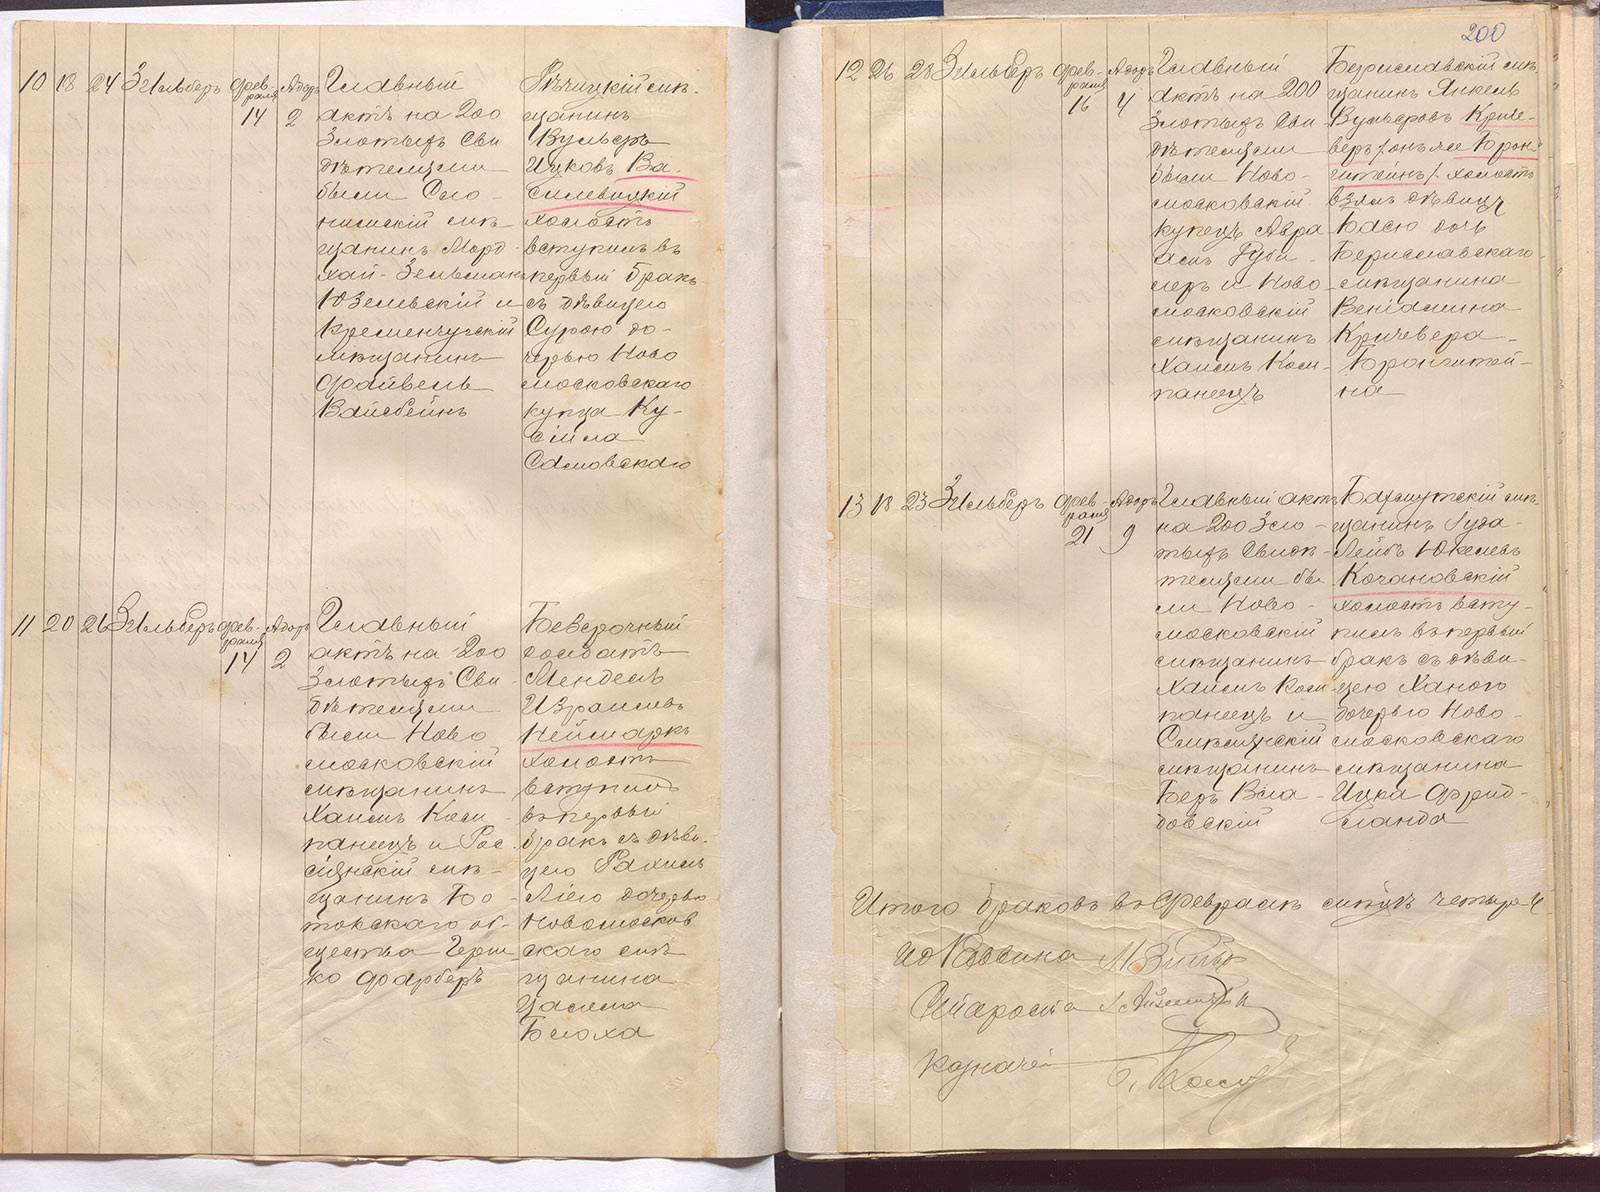 10 18 24 Зильберъ Фев-
раля
14 Адаръ
2 Главный
актъ на 200
злотыхъ Сви
дѣтелями
были Сло-
нимскій мѣ
щанинъ Морд
хай-Зельманъ
Юзельскій и
Кременчугскій
мѣщанинъ
Файвель
Вайсбейнъ
Рѣчицкій мѣ-
щанинъ
Вульфъ
Ицковъ Ва-
силевицкій
холостъ
вступилъ въ
первый бракъ
съ дѣвицею
Сурою до-
черью Ново
московскаго
купца Ку-
сійла
Самовскаго
11 20 26 Зильберъ Фев-
раля
14 Адаръ
2 Главный
актъ на 200
злотыхъ Сви-
дѣтелями
были Ново
московскій
мѣщанинъ
Хаимъ Ком-
панеецъ и Рос-
сіянскій мѣ-
щанинъ Бо-
товскаго об-
щества Герш
ко Фарберъ
Безсрочный
солдатъ
Мендель
Израилевъ
Неймаркъ
холостъ
вступилъ
въ первый
бракъ съ дѣви-
цею Рахиль
Ліею дочерью
Новомосков
скаго мѣ
щанина
Блоха
200
12 26 28 Зильберъ Фев-
раля
16 Адаръ
4 Главный
актъ на 200
злотыхъ Сви
дѣтелями
были Ново-
московскій
купецъ Авра
амъ Руби-
леръ и Ново
московскій
мѣщанинъ
Хаимъ Ком-
панеецъ
Бериславскій мѣ-
щанинъ Янкель
Вульфовъ Криче-
веръ /онъ же Брон-
штейнъ/ холостъ
взялъ дѣвицу
Басю дочь
Бериславскаго
мѣщанина
Веніамина
Кричевера-
Бронштей-
на
13 18 23 Зильберъ Фев-
раля
21 Адаръ
9 Главный актъ
на 200 зло-
тыхъ Свидѣ-
телями бы-
ли Ново-
московскій
мѣщанинъ
Хаимъ Ком
панеецъ и
мѣщанинъ
Беръ Вла-
довскій
Бахмутскій мѣ-
щанинъ Іуда-
Лейбъ Юкелевъ
Кочановскій
холостъ всту-
пилъ въ первый
бракъ съ дѣви-
цею Ханою
дочерью Ново-
московскаго
мѣщанина
Ицка Фрид-
ланда
Итого браковъ въ Февралѣ мѣсяцѣ четыре 4
Ид Раввина
Староста
Казначей